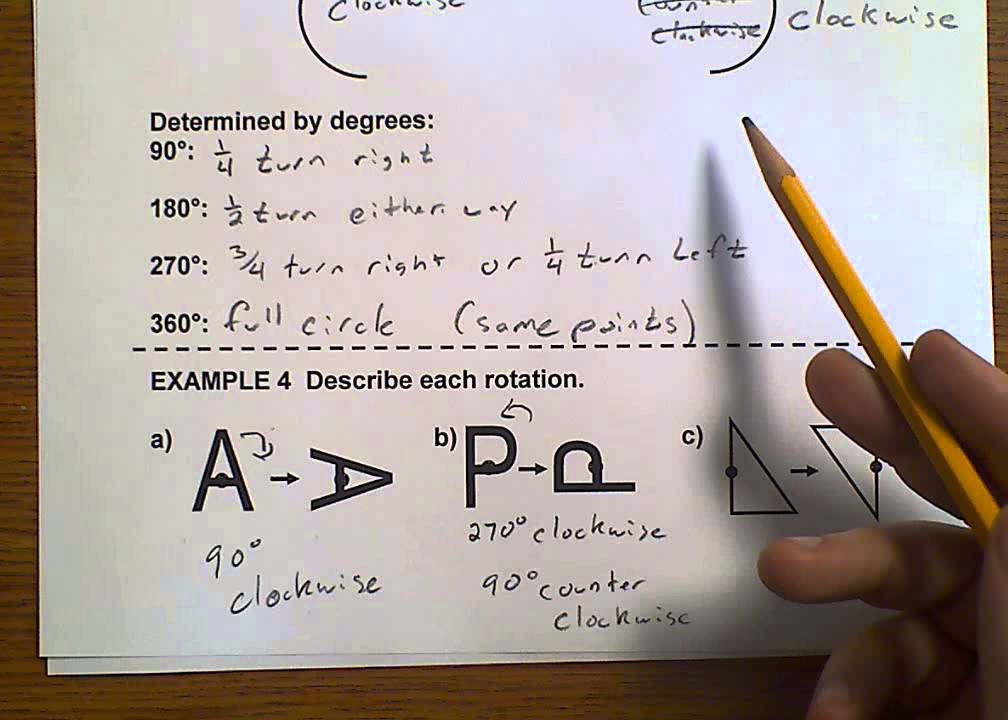 clockwise
counter
clockwise clockwise
Determined by degrees:
90°: 1/4 turn right
180°: 1/2 turn either way
270°: 3/4 turn right or 1/4 turn Left
360°: full circle (same points)
EXAMPLE 4 Describe each rotation.
a) A → A b) P → P c) →
270° clockwise
90°
clockwise
90° counter
clockwise